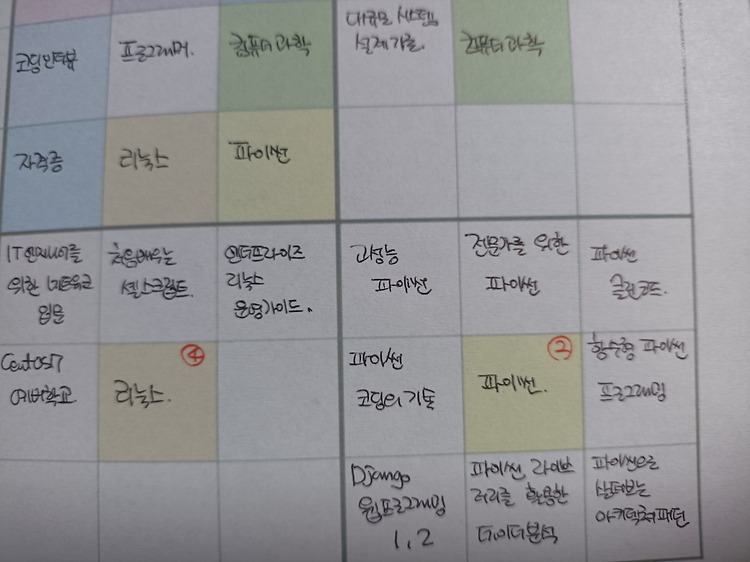 대규모 시스템
설계 기술.
코딩인터뷰
프로그래머.
컴퓨터 과학
컴퓨터 과학
자격증
리눅스
파이썬
IT엔지니어를
위한 네트워크
입문
처음배우는
셸스크립트.
엔터프라이즈
리눅스
운영가이드.
고성능
파이썬
전문가를 위한
파이썬
파이썬
클린코드.
CentOS7
예비학교
리눅스.
④
파이썬
코딩의 기술
파이썬.
③
함수형 파이썬
프로그래밍
Django
웹프로그래밍
1, 2
파이썬 라이브
러리를 활용한
데이터분석
파이썬으로
살펴보는
아키텍처패턴